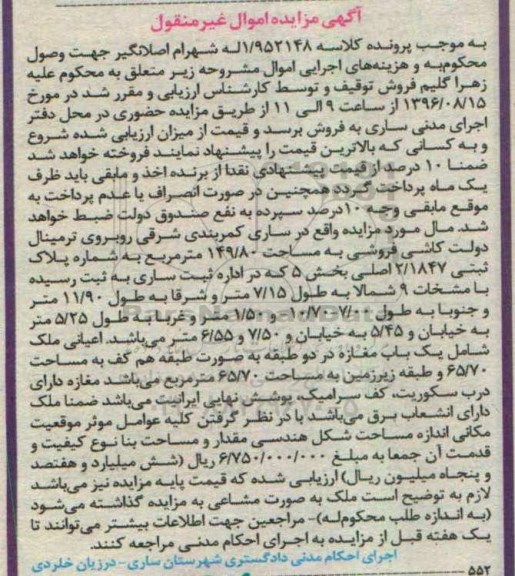 آگهی مزایده اموال غیر منقول
به موجب پرونده کلاسه ۱/۹۵۲۱۴۸له شهرام اصلانگیر جهت وصول
محکوم‌به و هزینه‌های اجرایی اموال مشروحه زیر متعلق به محکوم علیه
زهرا گلیم فروش توقیف و توسط کارشناس ارزیابی و مقرر شد در مورخ
۱۳۹۶/۰۸/۱۵ از ساعت ۹ الی ۱۱ از طریق مزایده حضوری در محل دفتر
اجرای مدنی ساری به فروش برسد و قیمت از میزان ارزیابی شده شروع
و به کسانی که بالاترین قیمت را پیشنهاد نمایند فروخته خواهد شد
ضمنا ۱۰ درصد از قیمت پیشنهادی نقدا از برنده اخذ و مابقی باید ظرف
یک ماه پرداخت گردد همچنین در صورت انصراف یا عدم پرداخت به
موقع مابقی وجه ۱۰درصد سپرده به نفع صندوق دولت ضبط خواهد
شد. مال مورد مزایده واقع در ساری کمربندی شرقی روبروی ترمینال
دولت کاشی فروشی به مساحت ۱۴۹/۸۰ مترمربع به شماره پلاک
ثبتی ۲/۱۸۴۷ اصلی بخش ۵ که در اداره ثبت ساری به ثبت رسیده
با مشخات ۹ شمالا به طول ۷/۱۵ متر و شرقا به طول ۱۱/۹۰ متر
و جنوبا به طول ۷/۰۱ و ۱۰/۷۰ و ۱۱/۵۰ متر و غربا به طول ۵/۲۵ متر
به خیابان و ۵/۴۵ به خیابان و ۷/۵۰ و ۶/۵۵ متر می‌باشد. اعیانی ملک
شامل یک باب مغازه در دو طبقه به صورت طبقه هم کف به مساحت
۶۵/۷۰ و طبقه زیرزمین به مساحت ۶۵/۷۰ مترمربع می‌باشد مغازه دارای
درب سکوریت، کف سرامیک، پوشش نهایی ایرانیت می‌باشد ضمنا ملک
دارای انشعاب برق می‌باشد با در نظر گرفتن کلیه عوامل موثر موقعیت
مکانی اندازه مساحت شکل هندسی مقدار و مساحت بنا نوع کیفیت و
قدمت آن جمعا به مبلغ ۶/۷۵۰/۰۰۰/۰۰۰ ریال (شش میلیارد و هفتصد
و پنجاه میلیون ریال) ارزیابی شده که قیمت پایه مزایده نیز می‌باشد
لازم به توضیح است ملک به صورت مشاعی به مزایده گذاشته می‌شود
(به اندازه طلب محکوم‌له)- مراجعین جهت اطلاعات بیشتر می‌توانند تا
یک هفته قبل از مزایده به اجرای احکام مدنی مراجعه کنند.
اجرای احکام مدنی دادگستری شهرستان ساری- درزیان خلردی
۵۵۲